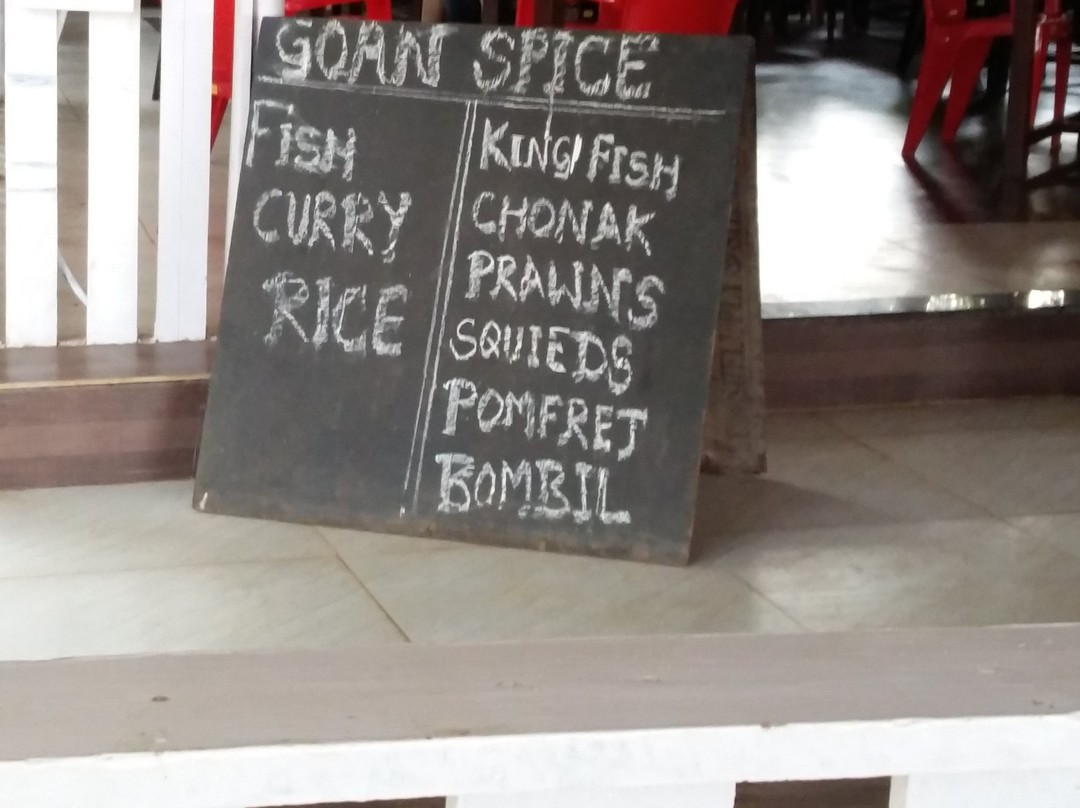 GOAN SPICE
FISH
CURRY
RICE
KING FISH
CHONAK
PRAWNS
SQUIEDS
POMFRET
BOMBIL